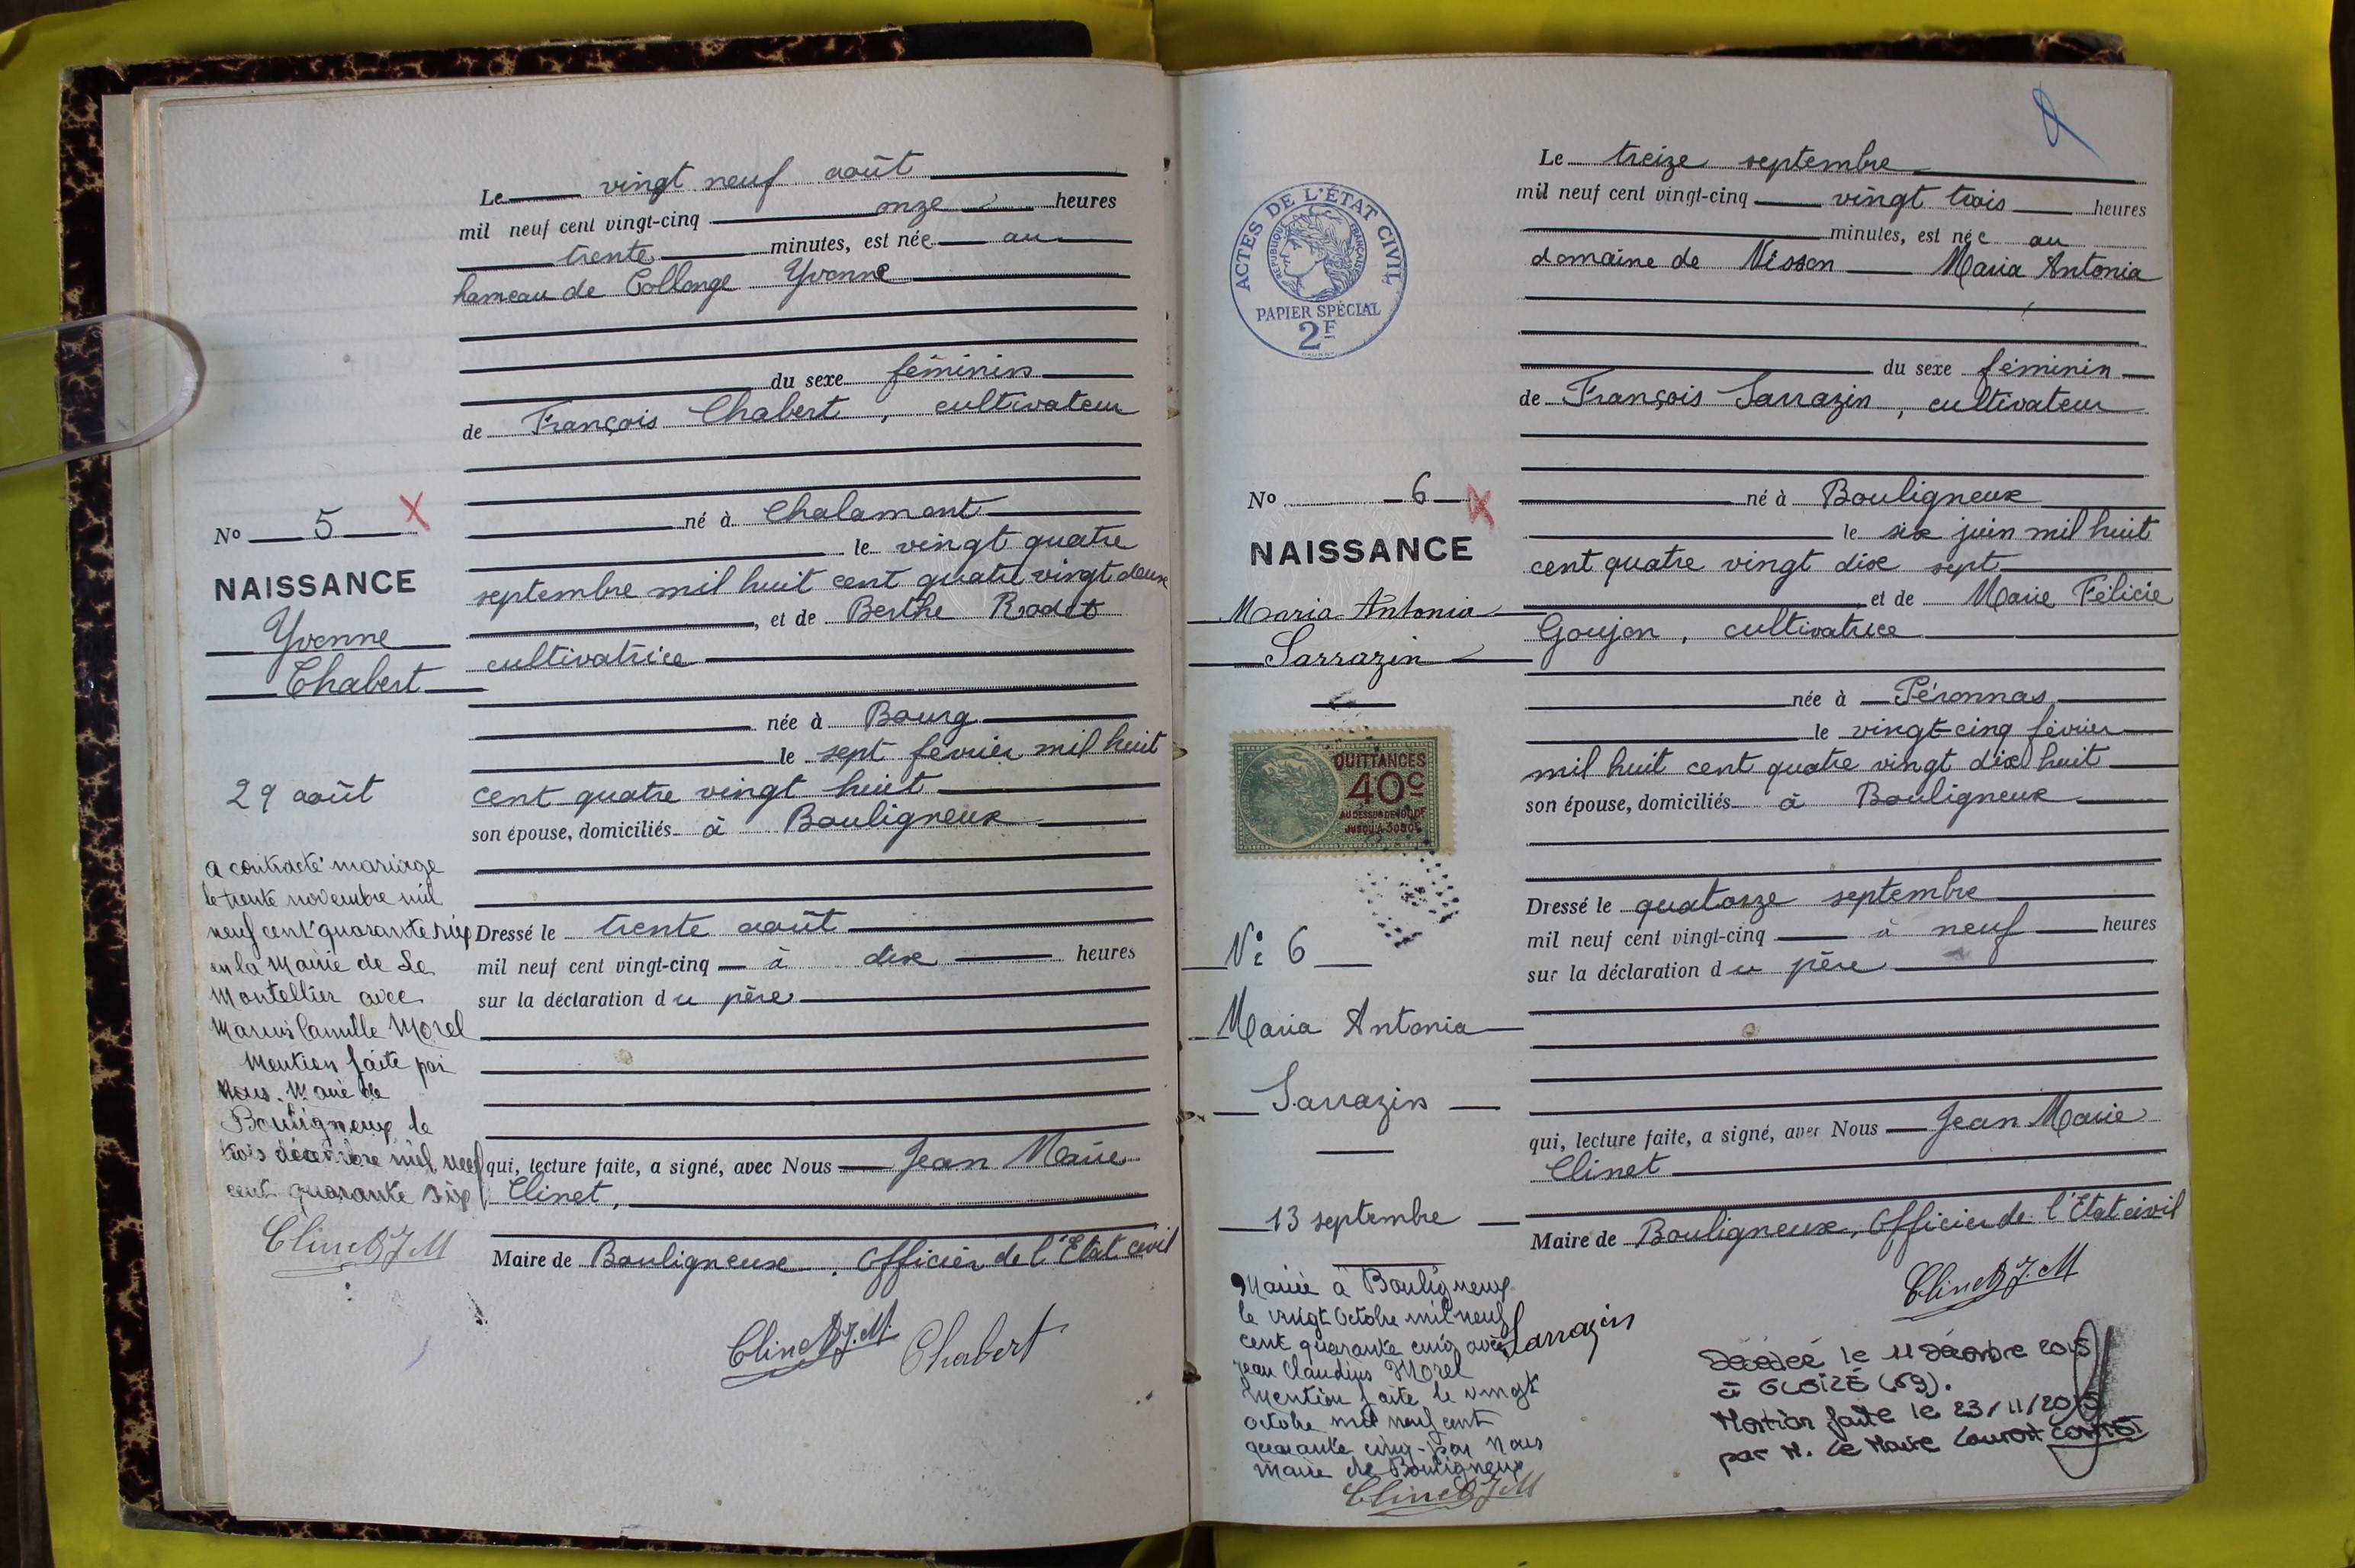 Le vingt neuf août
mil neuf cent vingt-cinq onze heures
trente minutes, est née au
hameau de Collonge Yvonne
du sexe féminin
de François Chabert, cultivateur
né à Chalamont
le vingt quatre
septembre mil huit cent quatre vingt deux
, et de Berthe Rodet
cultivatrice
née à Bourg
le sept février mil huit
cent quatre vingt huit
son épouse, domiciliés à Bouligneux
Dressé le trente août
mil neuf cent vingt-cinq à dix heures
sur la déclaration du père
qui, lecture faite, a signé, avec Nous Jean Marie
Clinet,
Maire de Bouligneux. Officier de l'Etat civil
Clinet J.M.
Chabert
No 5
NAISSANCE
Yvonne
Chabert
29 août
a contracté mariage
le trente novembre mil
neuf cent quarante six
en la Mairie de Le
Montellier avec
Marius Camille Morel
Mention faite par
Nous. Maire de
Bouligneux le
trois décembre mil neuf
cent quarante six
Clinet J M
Le treize septembre
mil neuf cent vingt-cinq vingt trois heures
minutes, est née au
domaine de Maria Antonia
du sexe féminin
de François Sarrazin, cultivateur
né à Bouligneux
le six juin mil huit
cent quatre vingt dix sept
et de Marie Félicie
Goujon, cultivatrice
née à Péronnas
le vingt-cinq février
mil huit cent quatre vingt dix huit
son épouse, domiciliés à Bouligneux
Dressé le quatorze septembre
mil neuf cent vingt-cinq à neuf heures
sur la déclaration du père
qui, lecture faite, a signé, avec Nous Jean Marie
Clinet
Maire de Bouligneux, Officier de l'Etat civil
Clinet J.M
Sarrazin
Décédée le 11 2015
à GLEIZÉ (69).
Mention faite le 23/11/2015
par M. Le Maire Laurent COMTET
ACTES DE L'ÉTAT CIVIL
RÉPUBLIQUE FRANÇAISE
PAPIER SPÉCIAL
2F
No 6
NAISSANCE
Maria Antonia
Sarrazin
QUITTANCES
40c
AU DESSUS DE 1000F
JUSQU'A 3000F
N: 6
Maria Antonia
Sarrazin
13 septembre
Mariée à Bouligneux
le vingt octobre mil neuf
cent quarante cinq avec
Jean Claudius Morel
Mention faite le vingt
octobre mil neuf cent
quarante cinq par Nous
Maire de Bouligneux
Clinet J M